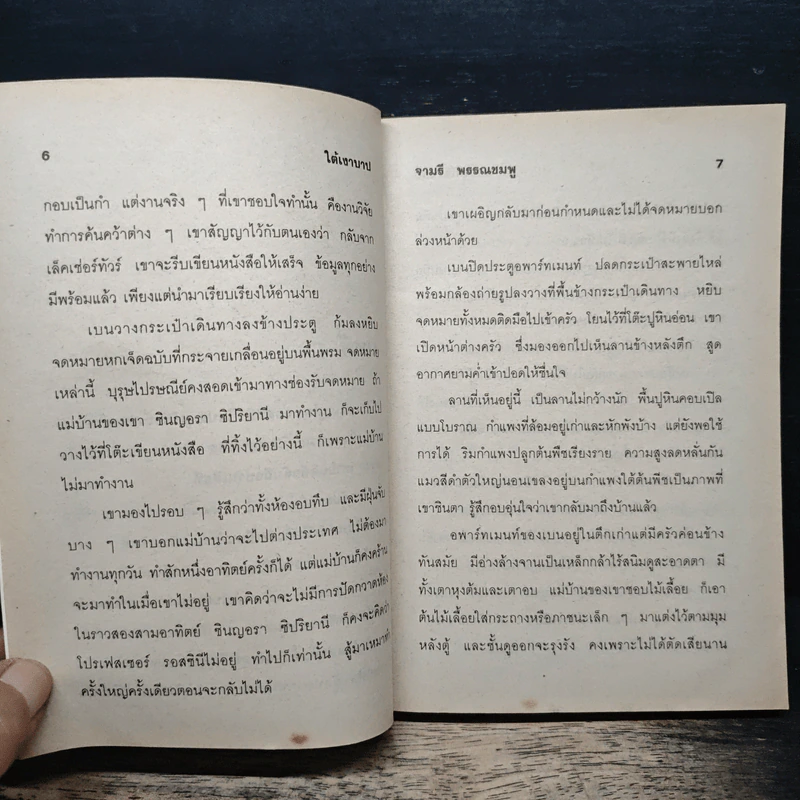 6
ใต้เงาบาป
กอบเป็นกำ แต่งานจริง ๆ ที่เขาชอบใจทำนั้น คืองานวิจัย
ทำการค้นคว้าต่าง ๆ เขาสัญญาไว้กับตนเองว่า กลับจาก
เล็คเชอร์ทัวร์ เขาจะรีบเขียนหนังสือให้เสร็จ ข้อมูลทุกอย่าง
มีพร้อมแล้ว เพียงแต่นำมาเรียบเรียงให้อ่านง่าย
เบนวางกระเป๋าเดินทางลงข้างประตู ก้มลงหยิบ
จดหมายหกเจ็ดฉบับที่กระจายเกลื่อนอยู่บนพื้นพรม จดหมาย
เหล่านี้ บุรุษไปรษณีย์คงสอดเข้ามาทางช่องรับจดหมาย ถ้า
แม่บ้านของเขา ซินญอรา ซิปริยานี มาทำงาน ก็จะเก็บไป
วางไว้ที่โต๊ะเขียนหนังสือ ที่ทิ้งไว้อย่างนี้ ก็เพราะแม่บ้าน
ไม่มาทำงาน
เขามองไปรอบ ๆ รู้สึกว่าทั้งห้องอบทึบ และมีฝุ่นจับ
บาง ๆ เขาบอกแม่บ้านว่าจะไปต่างประเทศ ไม่ต้องมา
ทำงานทุกวัน ทำสักหนึ่งอาทิตย์ครั้งก็ได้ แต่แม่บ้านก็คงคร้าน
จะมาทำในเมื่อเขาไม่อยู่ เขาคิดว่าจะไม่มีการปัดกวาดห้อง
ในราวสองสามอาทิตย์ ซินญอรา ซิปริยานี ก็คงจะคิดว่า
โปรเฟสเซอร์ รอสซินีไม่อยู่ ทำไปก็เท่านั้น สู้มาเหมาทำ
ครั้งใหญ่ครั้งเดียวตอนจะกลับไม่ได้
จามรี พรรณชมพู
7
เขาเผอิญกลับมาก่อนกำหนดและไม่ได้จดหมายบอก
ล่วงหน้าด้วย
เบนปิดประตูอพาร์ทเมนท์ ปลดกระเป๋าสะพายไหล่
พร้อมกล้องถ่ายรูปลงวางที่พื้นข้างกระเป๋าเดินทาง หยิบ
จดหมายทั้งหมดติดมือไปเข้าครัว โยนไว้ที่โต๊ะปูหินอ่อน เขา
เปิดหน้าต่างครัว ซึ่งมองออกไปเห็นลานข้างหลังตึก สูด
อากาศยามค่ำเข้าปอดให้ชื่นใจ
ลานที่เห็นอยู่นี้ เป็นลานไม่กว้างนัก พื้นปูหินคอบเปิล
แบบโบราณ กำแพงที่ล้อมอยู่เก่าและหักพังบ้าง แต่ยังพอใช้
การได้ ริมกำแพงปลูกต้นพืชเรียงราย ความสูงลดหลั่นกัน
แมวสีดำตัวใหญ่นอนเขลงอยู่บนกำแพงใต้ต้นพืชเป็นภาพที่
เขาชินตา รู้สึกอบอุ่นใจว่าเขากลับมาถึงบ้านแล้ว
อพาร์ทเมนท์ของเบนอยู่ในตึกเก่าแต่มีครัวค่อนข้าง
ทันสมัย มีอ่างล้างจานเป็นเหล็กกล้าไร้สนิมดูสะอาดตา มี
ทั้งเตาหุงต้มและเตาอบ แม่บ้านของเขาชอบไม้เลื้อย ก็เอา
ต้นไม้เลื้อยใส่กระถางหรือภาชนะเล็ก ๆ มาแต่งไว้ตามมุม
หลังตู้ และชั้นดูออกจะรุงรัง คงเพราะไม่ได้ตัดเสียนาน